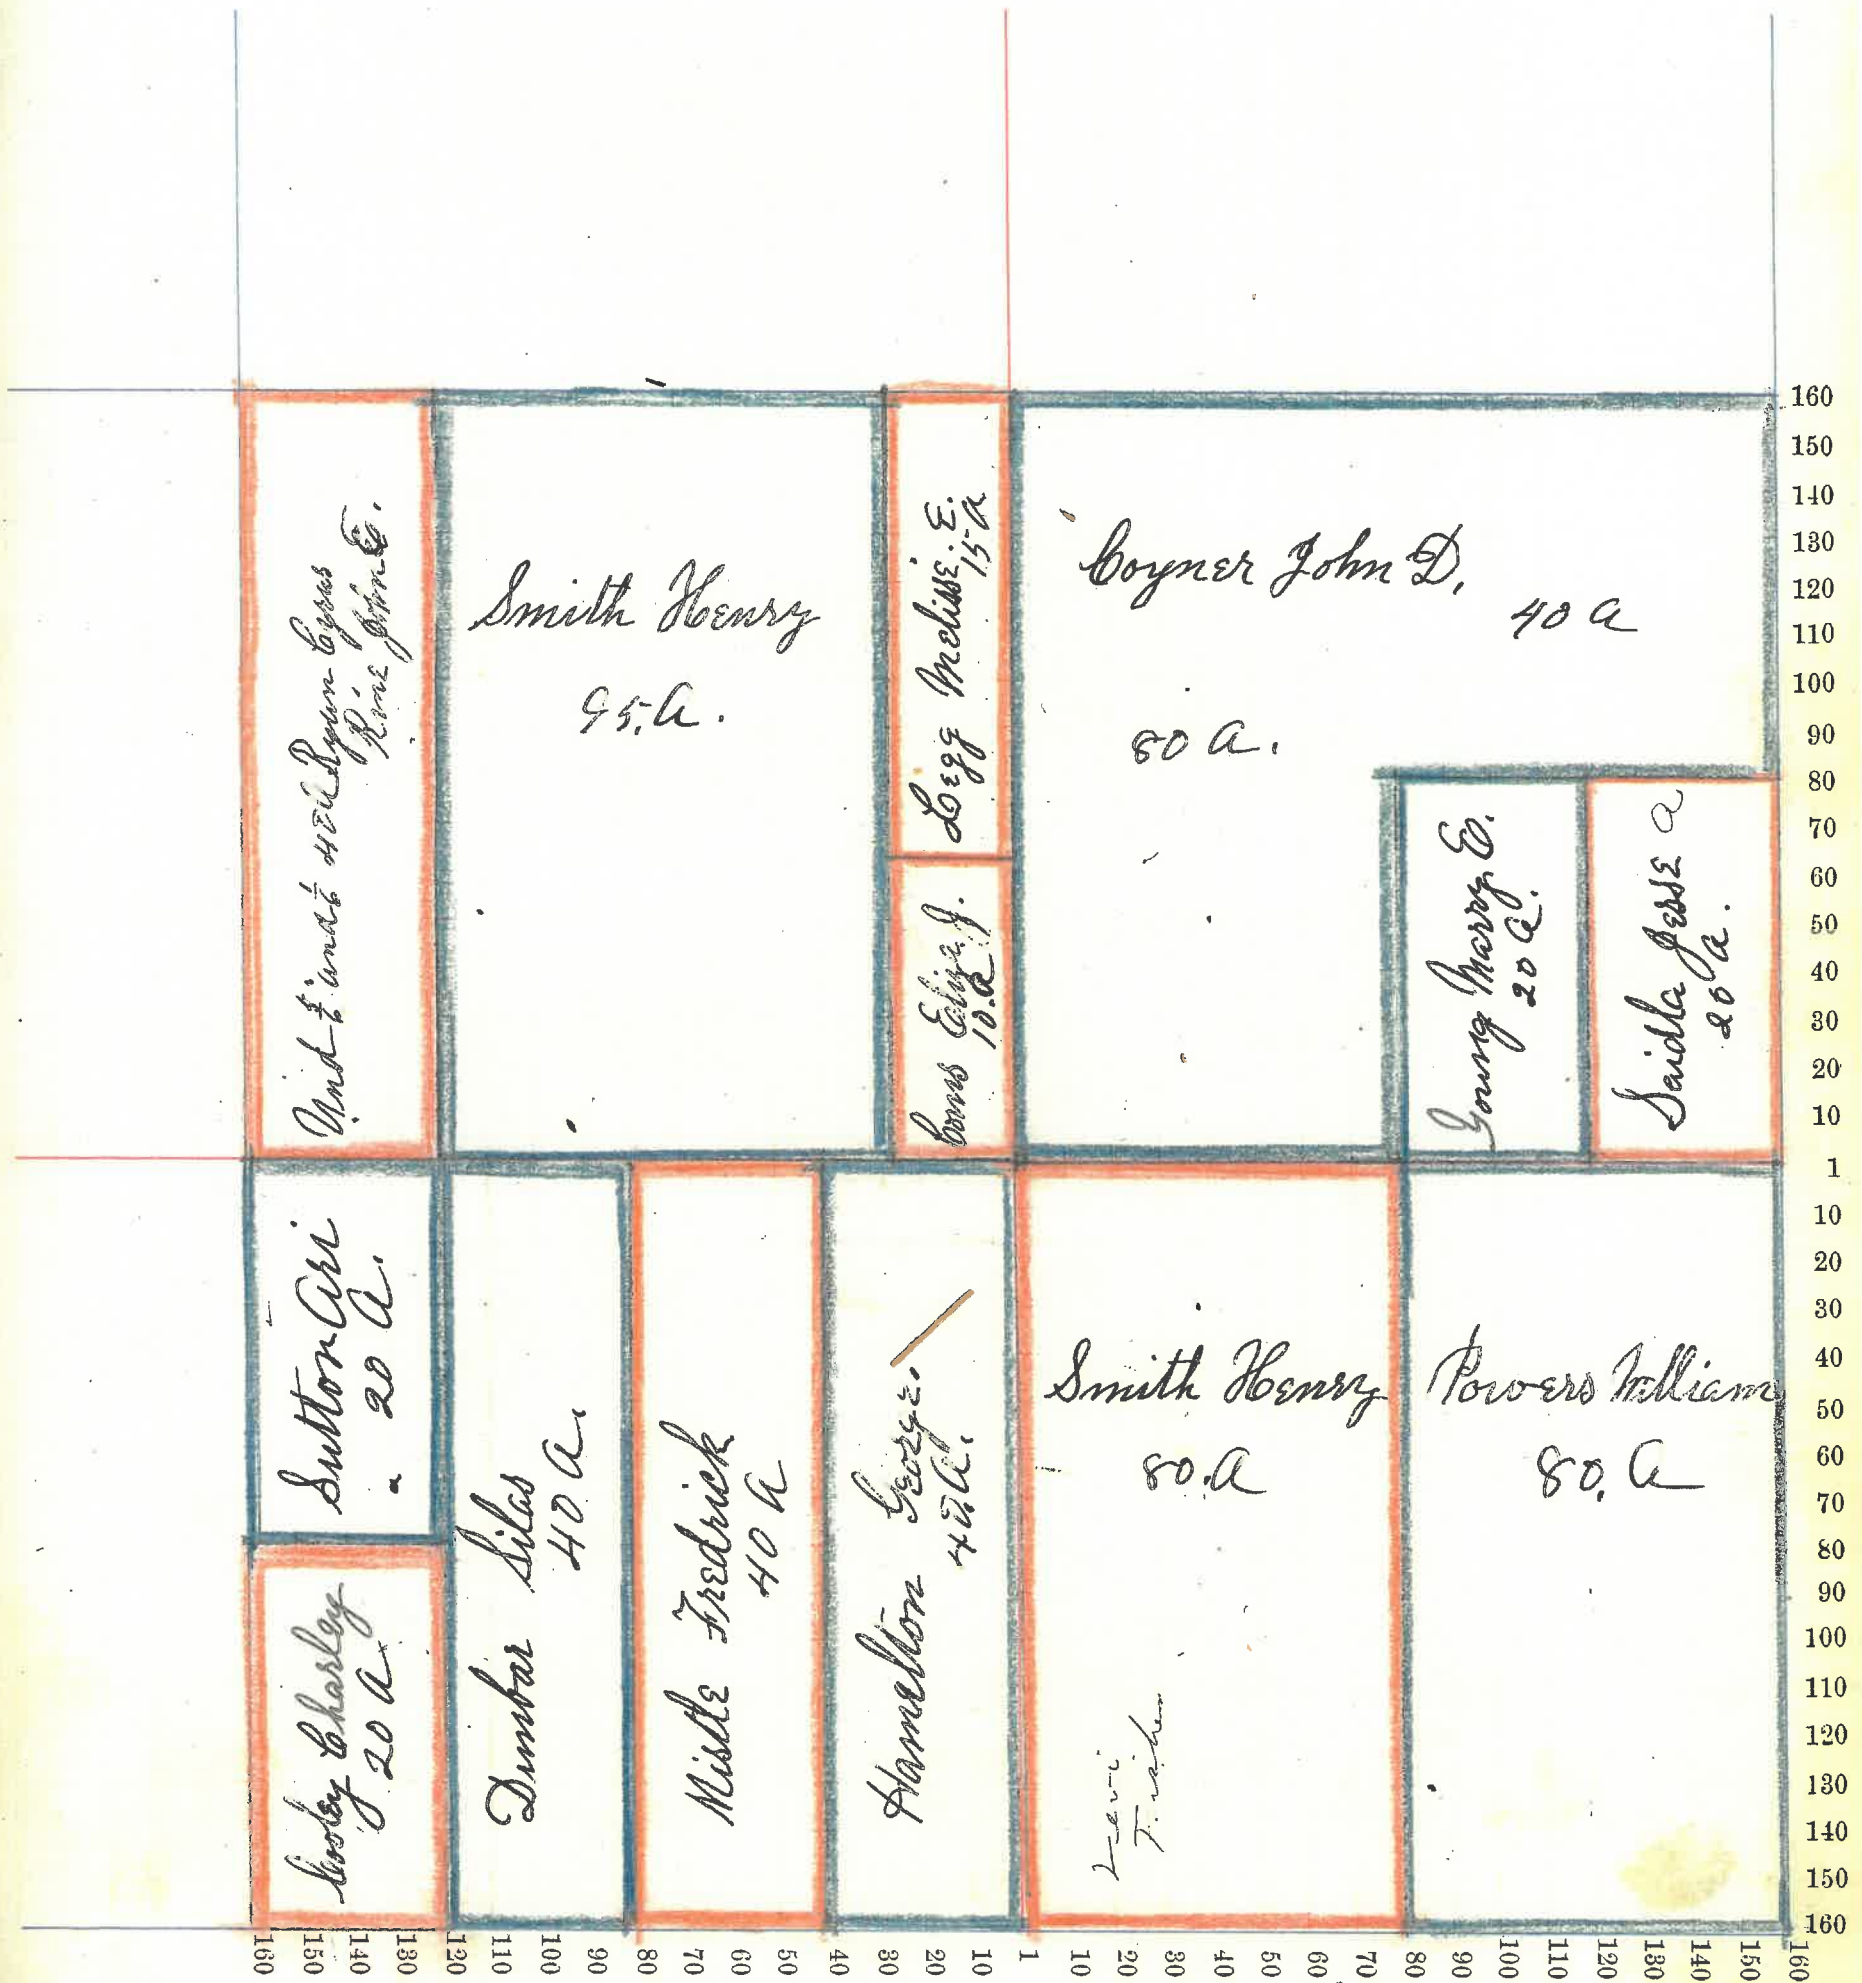 Und ⅚ und ⅙ 40 A Ryan Cyrus
Rine John E.
Smith Henry
95. A.
Legg Melisse. E.
15 A
Corns Eliza J.
10. A
Coyner John D.
40 A
80 A.
Young Marry E.
20 A.
Seidla Jesse A
20 A.
Sutton Ari
20 A.
Cooley Charley
20 A.
Dunbar Silas
40 A.
Mistle Fredrick
40 A
Hamelton George.
40. A.
Smith Henry
80. A
Levi
Powers William
80. A
160
150
140
130
120
110
100
90
80
70
60
50
40
30
20
10
1
10
20
30
40
50
60
70
80
90
100
110
120
130
140
150
160
160 150 140 130 120 110 100 90 80 70 60 50 40 30 20 10 1 10 20 30 40 50 60 70 80 90 100 110 120 130 140 150 160